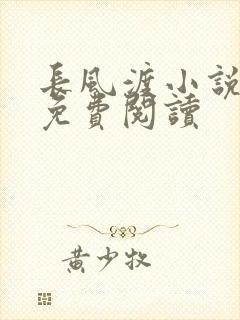 長風渡小說
免費閱讀
黃少牧